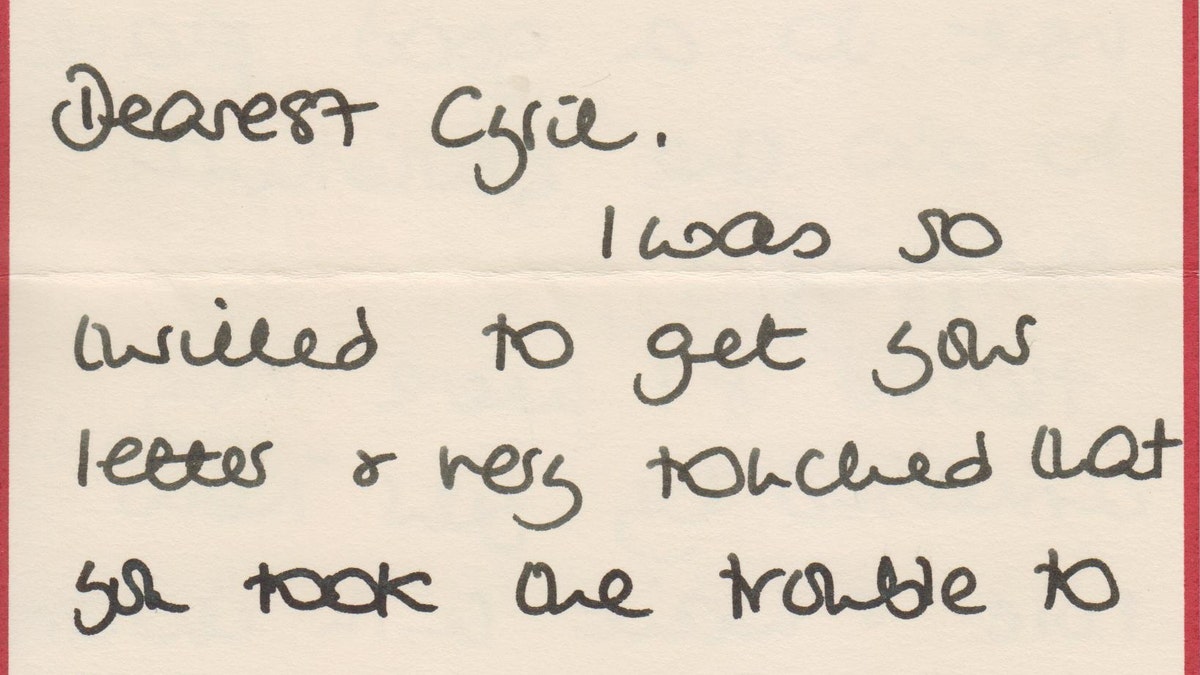 Dearest Cyril.
I was so
thrilled to get your
letter & very touched that
you took the trouble to